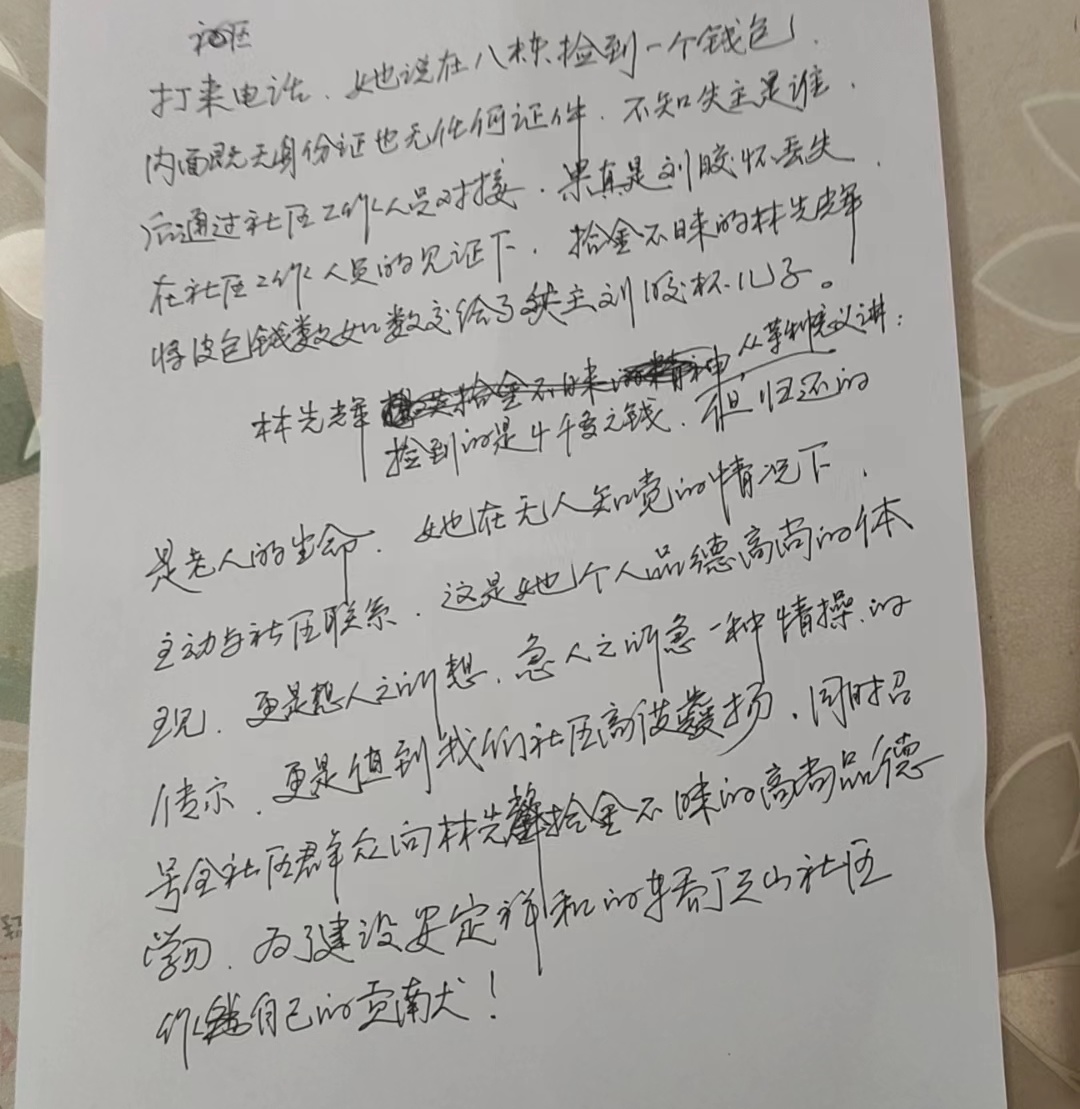 社区
打来电话、她说在八栋捡到一个钱包、
内面既无身份证也无任何证件、不知失主是谁、
后通过社区工作人员对接、果真是刘胶怀丢失、
在社区工作人员的见证下、拾金不昧的林先辉
将皮包钱数如数交给了失主刘胶怀儿子。
林先辉 从某种意义讲：
捡到的是4千多元钱、但归还的
是老人的生命、她在无人知觉的情况下、
主动与社区联系、这是她个人品德高尚的体
现、更是想人之所想、急人之所急一种情操的
传示、更是值到我们社区高度发扬、同时招
号全社区群众向林先辉拾金不昧的高尚品德
学习、为了建设安定祥和的 山社区
作 自己的贡献！